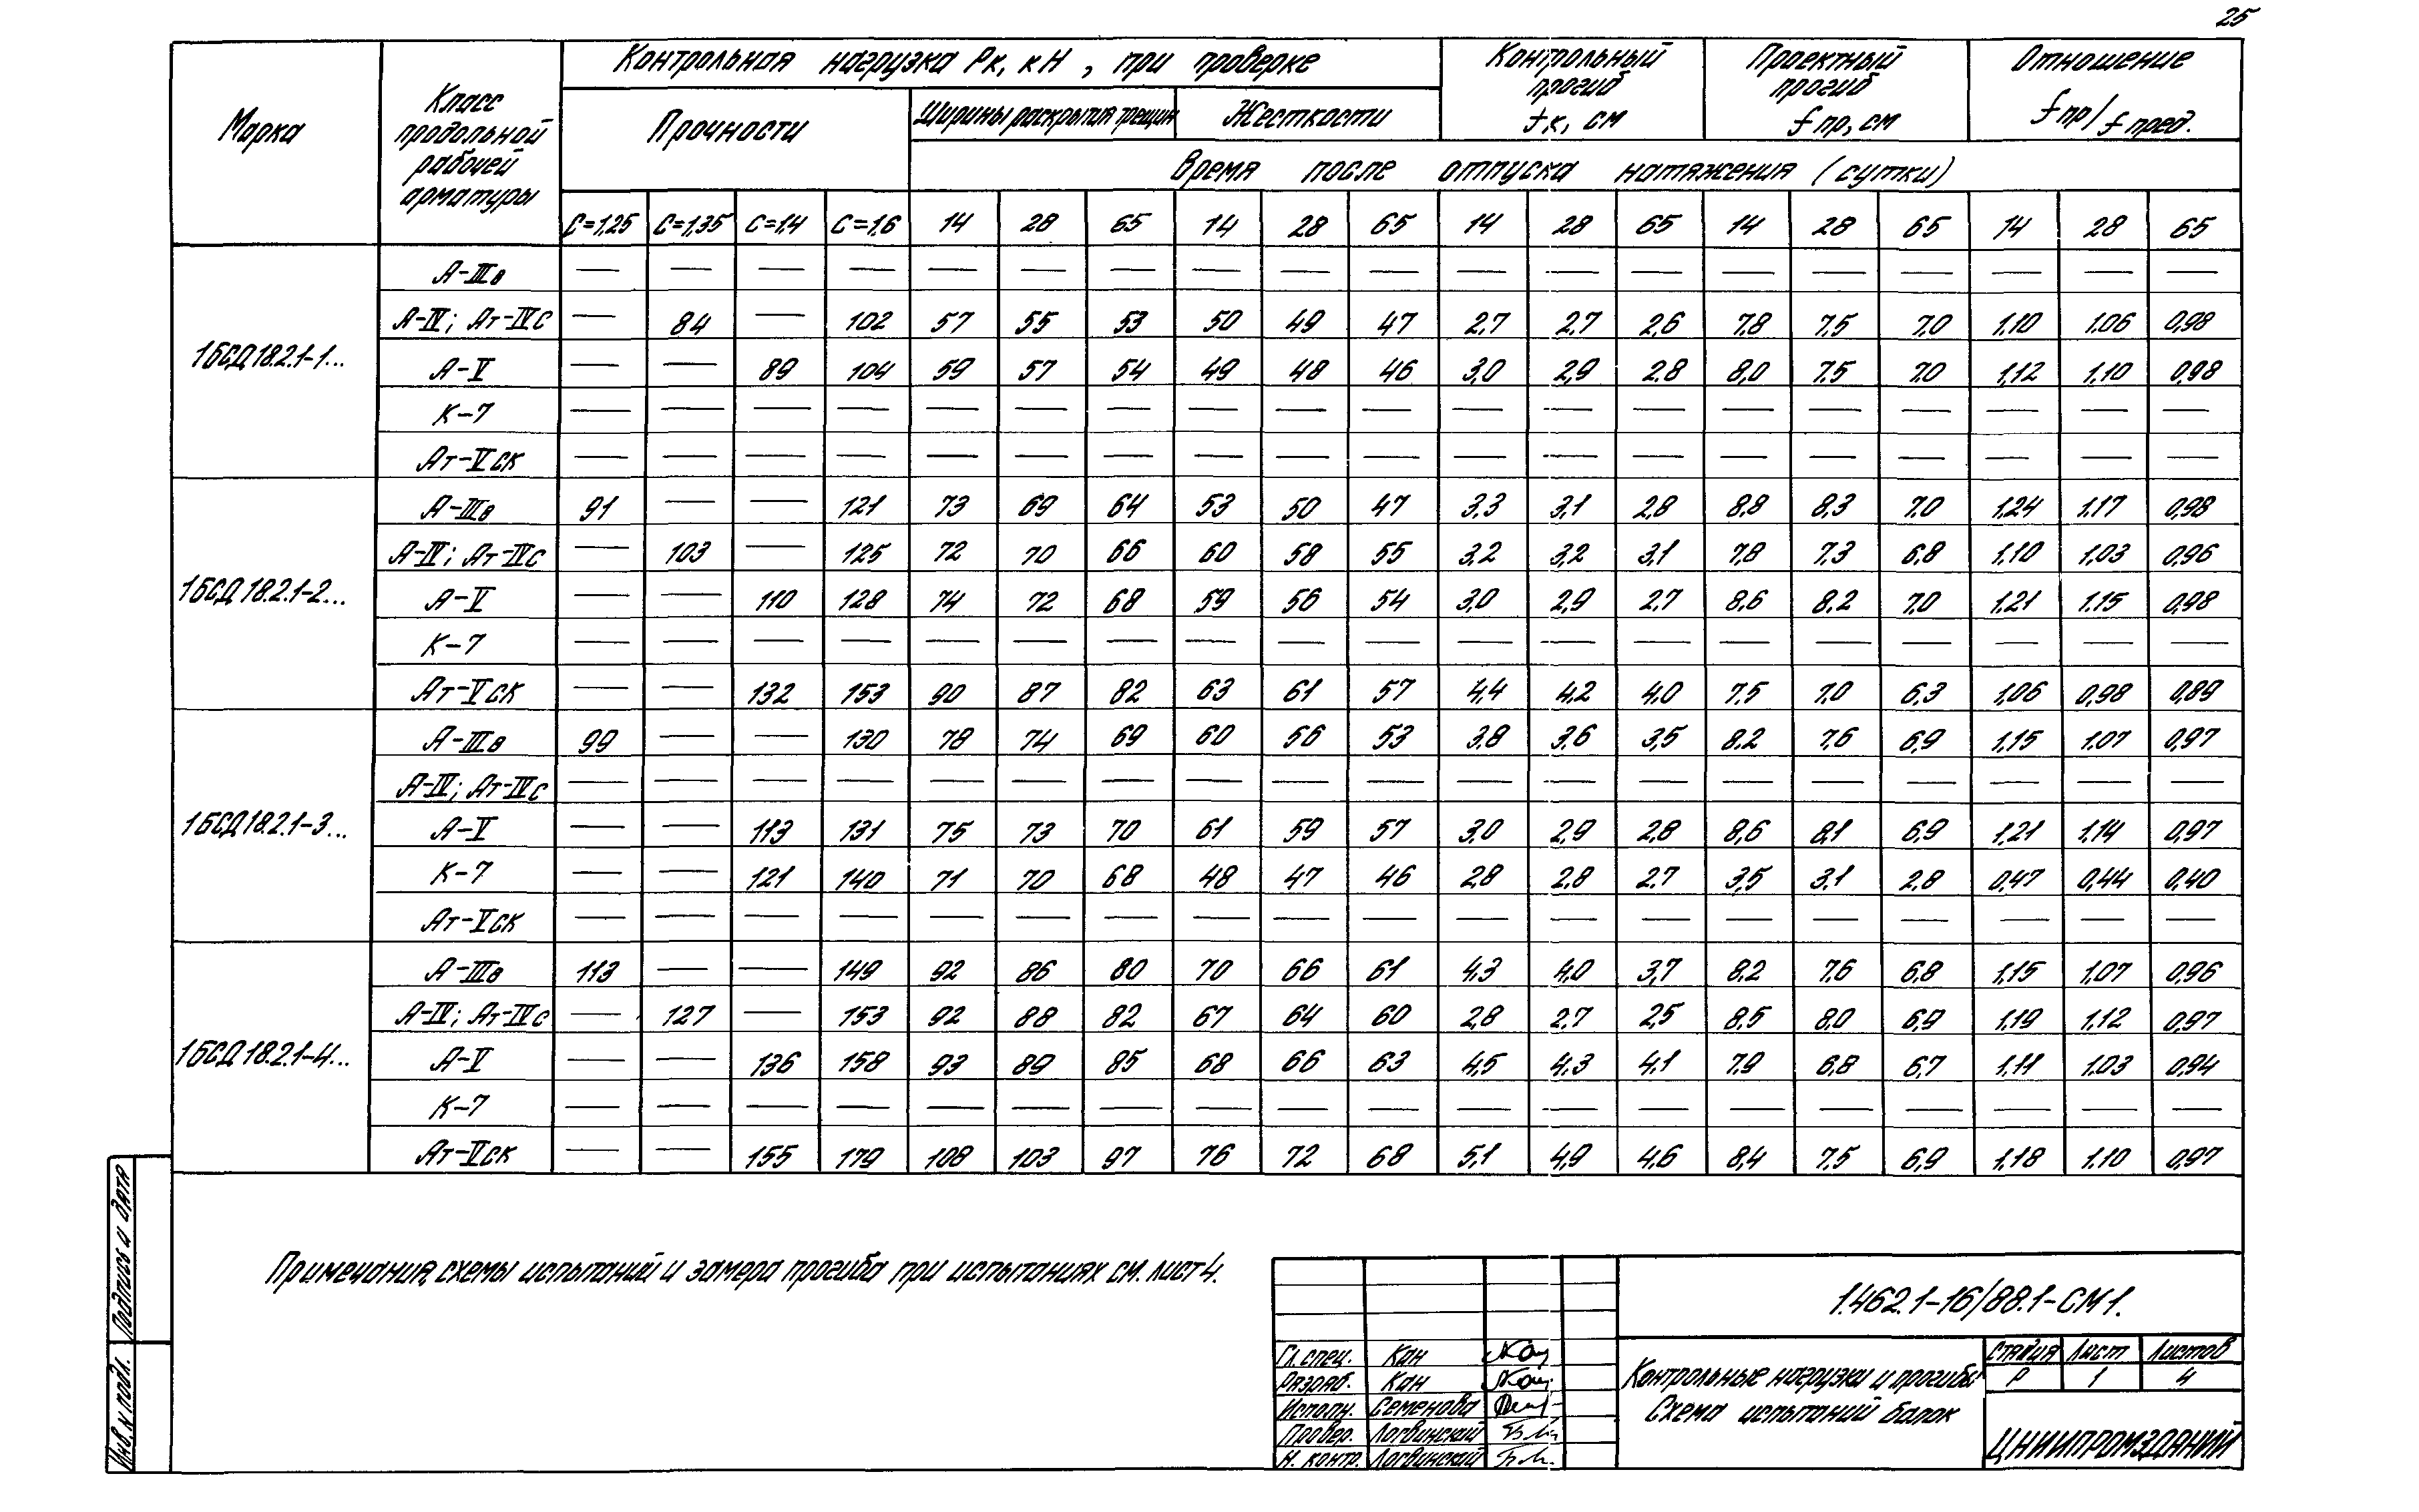 25
Марка
Класс продольной рабочей арматуры
Контрольная нагрузка Рк, кН, при проверке
Контрольный прогиб fк, см
Проектный прогиб fпр, см
Отношение fпр/fпред.
Прочности
Ширины раскрытия трещин
Жесткости
Время после отпуска натяжения (сутки)
С=1,25 С=1,35 С=1,4 С=1,6 14 28 65 14 28 65 14 28 65 14 28 65 14 28 65
1БСД18.2.1-1...
А-IIIв — — — — — — — — — — — — — — — — — — —
А-IV; Ат-IVС — 84 — 102 57 55 53 50 49 47 2,7 2,7 2,6 7,8 7,5 7,0 1,10 1.06 0,98
А-V — — 89 104 59 57 54 49 48 46 3,0 2,9 2,8 8,0 7,5 7,0 1,12 1.10 0,98
К-7 — — — — — — — — — — — — — — — — — — —
Ат-VСК — — — — — — — — — — — — — — — — — — —
1БСД18.2.1-2...
А-IIIв 91 — — 121 73 69 64 53 50 47 3,3 3,1 2,8 8,8 8,3 7,0 1,24 1.17 0,98
А-IV; Ат-IVС — 103 — 125 72 70 66 60 58 55 3,2 3,2 3,1 7,8 7,3 6,8 1,10 1,03 0,96
А-V — — 110 128 74 72 68 59 56 54 3,0 2,9 2,7 8,6 8,2 7,0 1,21 1.15 0,98
К-7 — — — — — — — — — — — — — — — — — — —
Ат-VСК — — 132 153 90 87 82 63 61 57 4,4 4,2 4,0 7,5 7,0 6,3 1,06 0,98 0,89
1БСД18.2.1-3...
А-IIIв 99 — — 130 78 74 69 60 56 53 3,8 3,6 3,5 8,2 7,6 6,9 1,15 1.07 0,97
А-IV; Ат-IVС — — — — — — — — — — — — — — — — — — —
А-V — — 113 131 75 73 70 61 59 57 3,0 2,9 2,8 8,6 8,1 6,9 1,21 1.14 0,97
К-7 — — 121 140 71 70 68 48 47 46 2,8 2,8 2,7 3,5 3,1 2,8 0,47 0,44 0,40
Ат-VСК — — — — — — — — — — — — — — — — — — —
1БСД18.2.1-4...
А-IIIв 113 — — 149 92 86 80 70 66 61 4,3 4,0 3,7 8,2 7,6 6,8 1,15 1,07 0,96
А-IV; Ат-IVС — 127 — 153 92 88 82 67 64 60 2,8 2,7 2,5 8,5 8,0 6,9 1,19 1.12 0,97
А-V — — 136 158 93 89 85 68 66 63 4,5 4,3 4,1 7,9 6,8 6,7 1,11 1.03 0,94
К-7 — — — — — — — — — — — — — — — — — — —
Ат-VСК — — 155 179 108 103 97 76 72 68 5,1 4,9 4,6 8,4 7,5 6,9 1,18 1.10 0,97
Примечания, схемы испытаний и замера прогиба при испытаниях см. лист 4.
Подпись и дата
Инв. N подл.
1.462.1-16/88.1-СМ1.
Гл. спец. Кан
Разраб. Кан
Исполн. Семенова
Провер. Логвинский
Н. контр. Логвинский
Контрольные нагрузки и прогибы
Схема испытаний балок
Стадия Лист Листов
Р 1 4
ЦНИИПРОМЗДАНИЙ